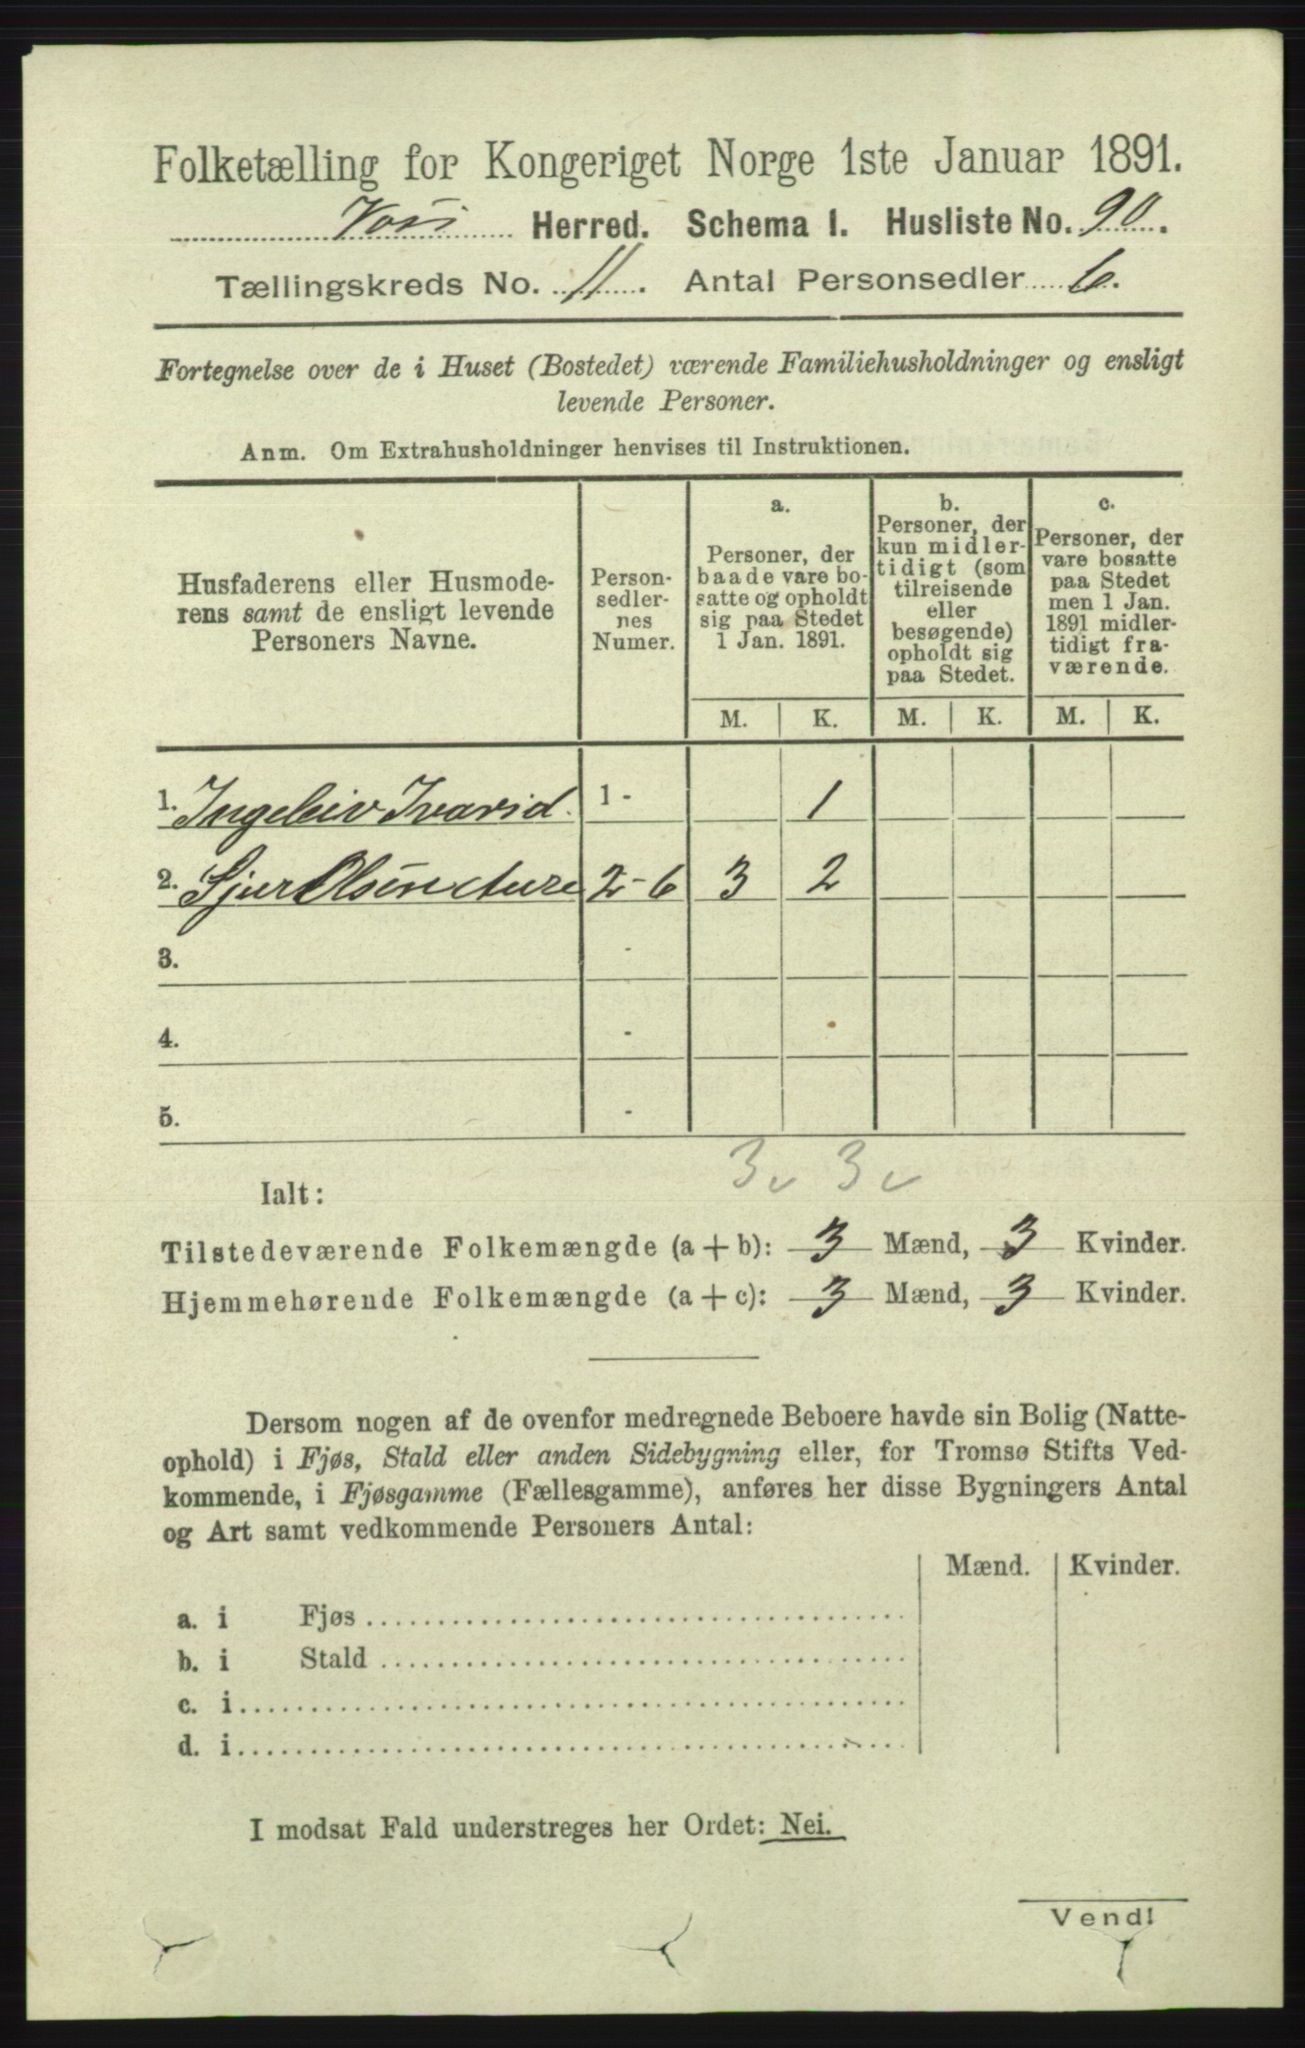 Folketælling for Kongeriget Norge 1ste Januar 1891.
Voss Herred. Schema 1. Husliste No. 90.
Tællingskreds No. 11. Antal Personsedler 6.
Fortegnelse over de i Huset (Bostedet) værende Familiehusholdninger og ensligt
levende Personer.
Anm. Om Extrahusholdninger henvises til Instruktionen.
Husfaderens eller Husmode-
rens samt de ensligt levende
Personers Navne.
Person-
sedler-
nes
Numer.
a.
Personer, der
baade vare bo-
satte og opholdt
sig paa Stedet
1 Jan. 1891.
b.
Personer, der
kun midler-
tidigt (som
tilreisende
eller
besøgende)
opholdt sig
paa Stedet.
c.
Personer, der
vare bosatte
paa Stedet
men 1 Jan.
1891 midler-
tidigt fra-
værende.
M. K. M. K. M. K.
1. Ingeleiv Ivarsd. 1 - 1
2. Sjur Olsen 2 - 6 3 2
3. -
4. -
5. -
3 3
Ialt:
Tilstedeværende Folkemængde (a + b): 3 Mænd, 3 Kvinder.
Hjemmehørende Folkemængde (a + c): 3 Mænd, 3 Kvinder.
Dersom nogen af de ovenfor medregnede Beboere havde sin Bolig (Natte-
ophold) i Fjøs, Stald eller anden Sidebygning eller, for Tromsø Stifts Ved-
kommende, i Fjøsgamme (Fællesgamme), anføres her disse Bygningers Antal
og Art samt vedkommende Personers Antal:
Mænd. Kvinder.
a. i Fjøs
b. i Stald
c. i
d. i
I modsat Fald understreges her Ordet: Nei.
Vend!